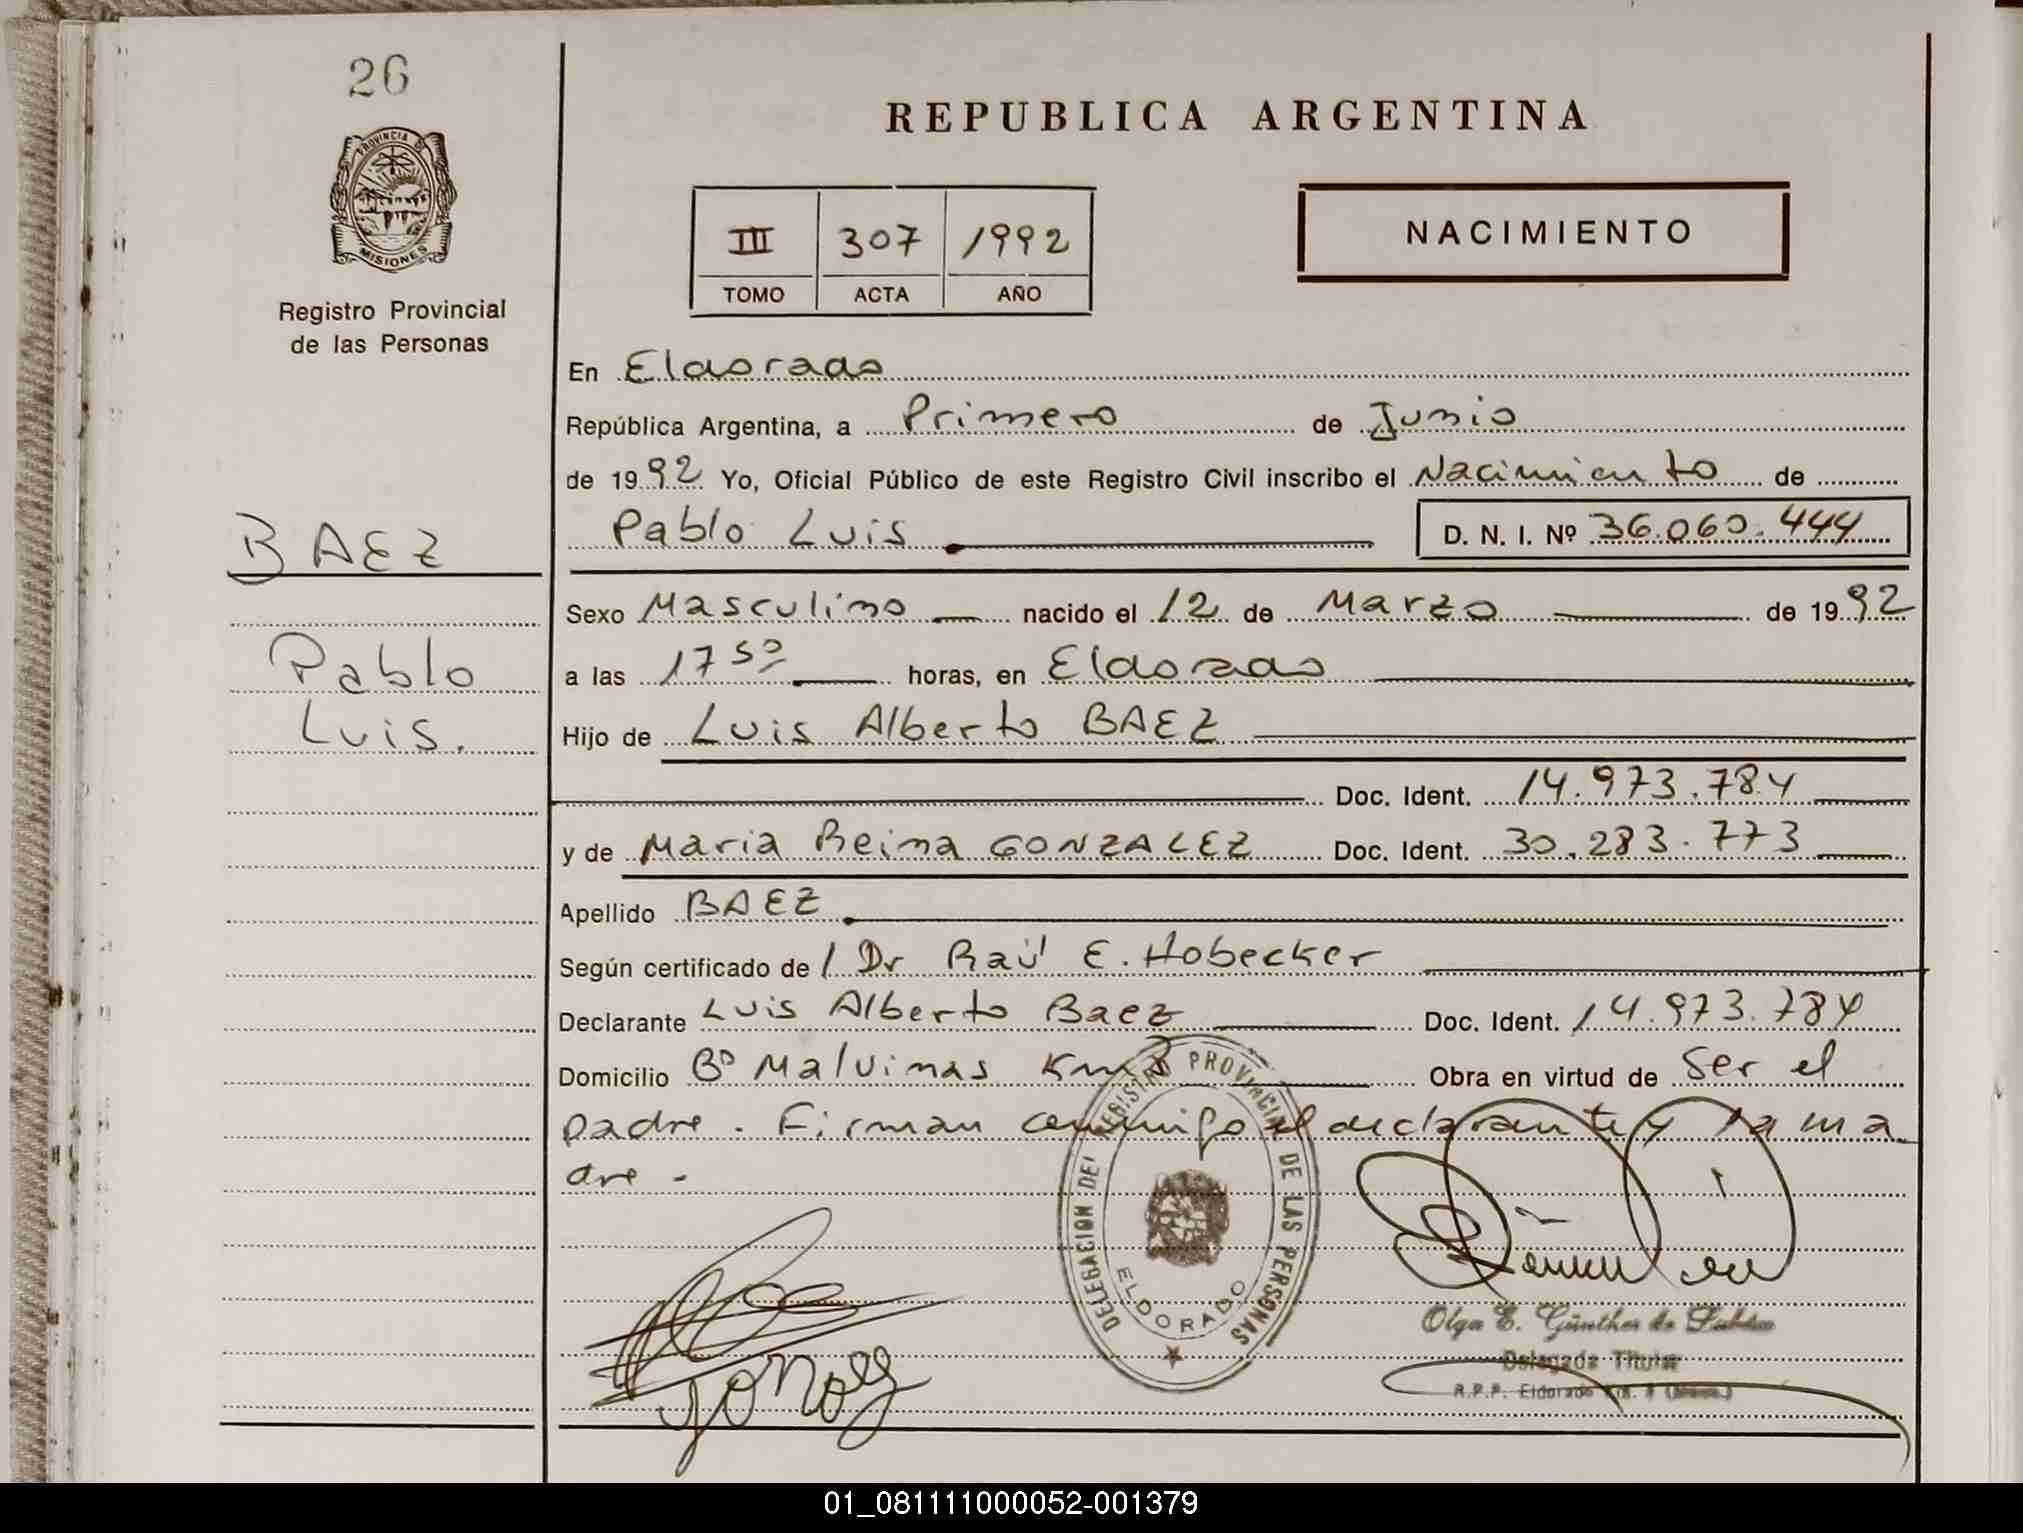 26
PROVINCIA DE
MISIONES
Registro Provincial
de las Personas
BAEZ
Pablo
Luis.
REPUBLICA ARGENTINA
III 307 1992
TOMO ACTA AÑO
NACIMIENTO
En Eldorado
República Argentina, a Primero de Junio
de 1992 Yo, Oficial Público de este Registro Civil inscribo el Nacimiento de
Pablo Luis D. N. I. Nº 36.060.444
Sexo Masculino nacido el 12 de Marzo de 1992
a las 17 50 horas, en Eldorado
Hijo de Luis Alberto BAEZ
Doc. Ident. 14.973.784
y de Maria Reina GONZALEZ Doc. Ident. 30.283.773
Apellido BAEZ
Según certificado de / Dr Raúl E. Hobecker
Declarante Luis Alberto Baez Doc. Ident. 14.973.784
Domicilio Bº Malvinas Km 8 Obra en virtud de Ser el
padre. Firman conmigo el declarante y la ma
dre -
DELEGACION DEL REGISTRO PROVINCIAL DE LAS PERSONAS
ELDORADO
Olga E. Günther de
Delegada Titular
R.P.P. Eldorado Km. 8 (Mnes.)
01_081111000052-001379